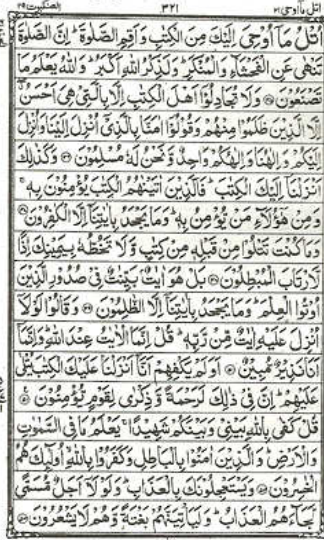 اتل مآ اوحی ۲۱ ۳۲۱ العنکبوت ۲۹
اُتْلُ مَآ اُوْحِیَ اِلَیْكَ مِنَ الْكِتٰبِ وَ اَقِمِ الصَّلٰوةَ ؕ اِنَّ الصَّلٰوةَ
تَنْهٰی عَنِ الْفَحْشَآءِ وَ الْمُنْكَرِ ؕ وَ لَذِكْرُ اللّٰهِ اَكْبَرُ ؕ وَ اللّٰهُ یَعْلَمُ مَا
تَصْنَعُوْنَ ۝ وَ لَا تُجَادِلُوْۤا اَهْلَ الْكِتٰبِ اِلَّا بِالَّتِیْ هِیَ اَحْسَنُ ۖ
اِلَّا الَّذِیْنَ ظَلَمُوْا مِنْهُمْ وَ قُوْلُوْۤا اٰمَنَّا بِالَّذِیْۤ اُنْزِلَ اِلَیْنَا وَ اُنْزِلَ
اِلَیْكُمْ وَ اِلٰهُنَا وَ اِلٰهُكُمْ وَاحِدٌ وَّ نَحْنُ لَهٗ مُسْلِمُوْنَ ۝ وَ كَذٰلِكَ
اَنْزَلْنَاۤ اِلَیْكَ الْكِتٰبَ ؕ فَالَّذِیْنَ اٰتَیْنٰهُمُ الْكِتٰبَ یُؤْمِنُوْنَ بِهٖ ۚ
وَ مِنْ هٰۤؤُلَآءِ مَنْ یُّؤْمِنُ بِهٖ ؕ وَ مَا یَجْحَدُ بِاٰیٰتِنَاۤ اِلَّا الْكٰفِرُوْنَ ۝
وَ مَا كُنْتَ تَتْلُوْا مِنْ قَبْلِهٖ مِنْ كِتٰبٍ وَّ لَا تَخُطُّهٗ بِیَمِیْنِكَ اِذًا
لَّارْتَابَ الْمُبْطِلُوْنَ ۝ بَلْ هُوَ اٰیٰتٌۢ بَیِّنٰتٌ فِیْ صُدُوْرِ الَّذِیْنَ
اُوْتُوا الْعِلْمَ ؕ وَ مَا یَجْحَدُ بِاٰیٰتِنَاۤ اِلَّا الظّٰلِمُوْنَ ۝ وَ قَالُوْا لَوْ لَاۤ
اُنْزِلَ عَلَیْهِ اٰیٰتٌ مِّنْ رَّبِّهٖ ؕ قُلْ اِنَّمَا الْاٰیٰتُ عِنْدَ اللّٰهِ ؕ وَ اِنَّمَاۤ
اَنَا نَذِیْرٌ مُّبِیْنٌ ۝ اَوَ لَمْ یَكْفِهِمْ اَنَّاۤ اَنْزَلْنَا عَلَیْكَ الْكِتٰبَ یُتْلٰی
عَلَیْهِمْ ؕ اِنَّ فِیْ ذٰلِكَ لَرَحْمَةً وَّ ذِكْرٰی لِقَوْمٍ یُّؤْمِنُوْنَ ۝
قُلْ كَفٰی بِاللّٰهِ بَیْنِیْ وَ بَیْنَكُمْ شَهِیْدًا ۚ یَعْلَمُ مَا فِی السَّمٰوٰتِ
وَ الْاَرْضِ ؕ وَ الَّذِیْنَ اٰمَنُوْا بِالْبَاطِلِ وَ كَفَرُوْا بِاللّٰهِ ۙ اُولٰٓىِٕكَ هُمُ
الْخٰسِرُوْنَ ۝ وَ یَسْتَعْجِلُوْنَكَ بِالْعَذَابِ ؕ وَ لَوْ لَاۤ اَجَلٌ مُّسَمًّی
لَّجَآءَهُمُ الْعَذَابُ ؕ وَ لَیَاْتِیَنَّهُمْ بَغْتَةً وَّ هُمْ لَا یَشْعُرُوْنَ ۝